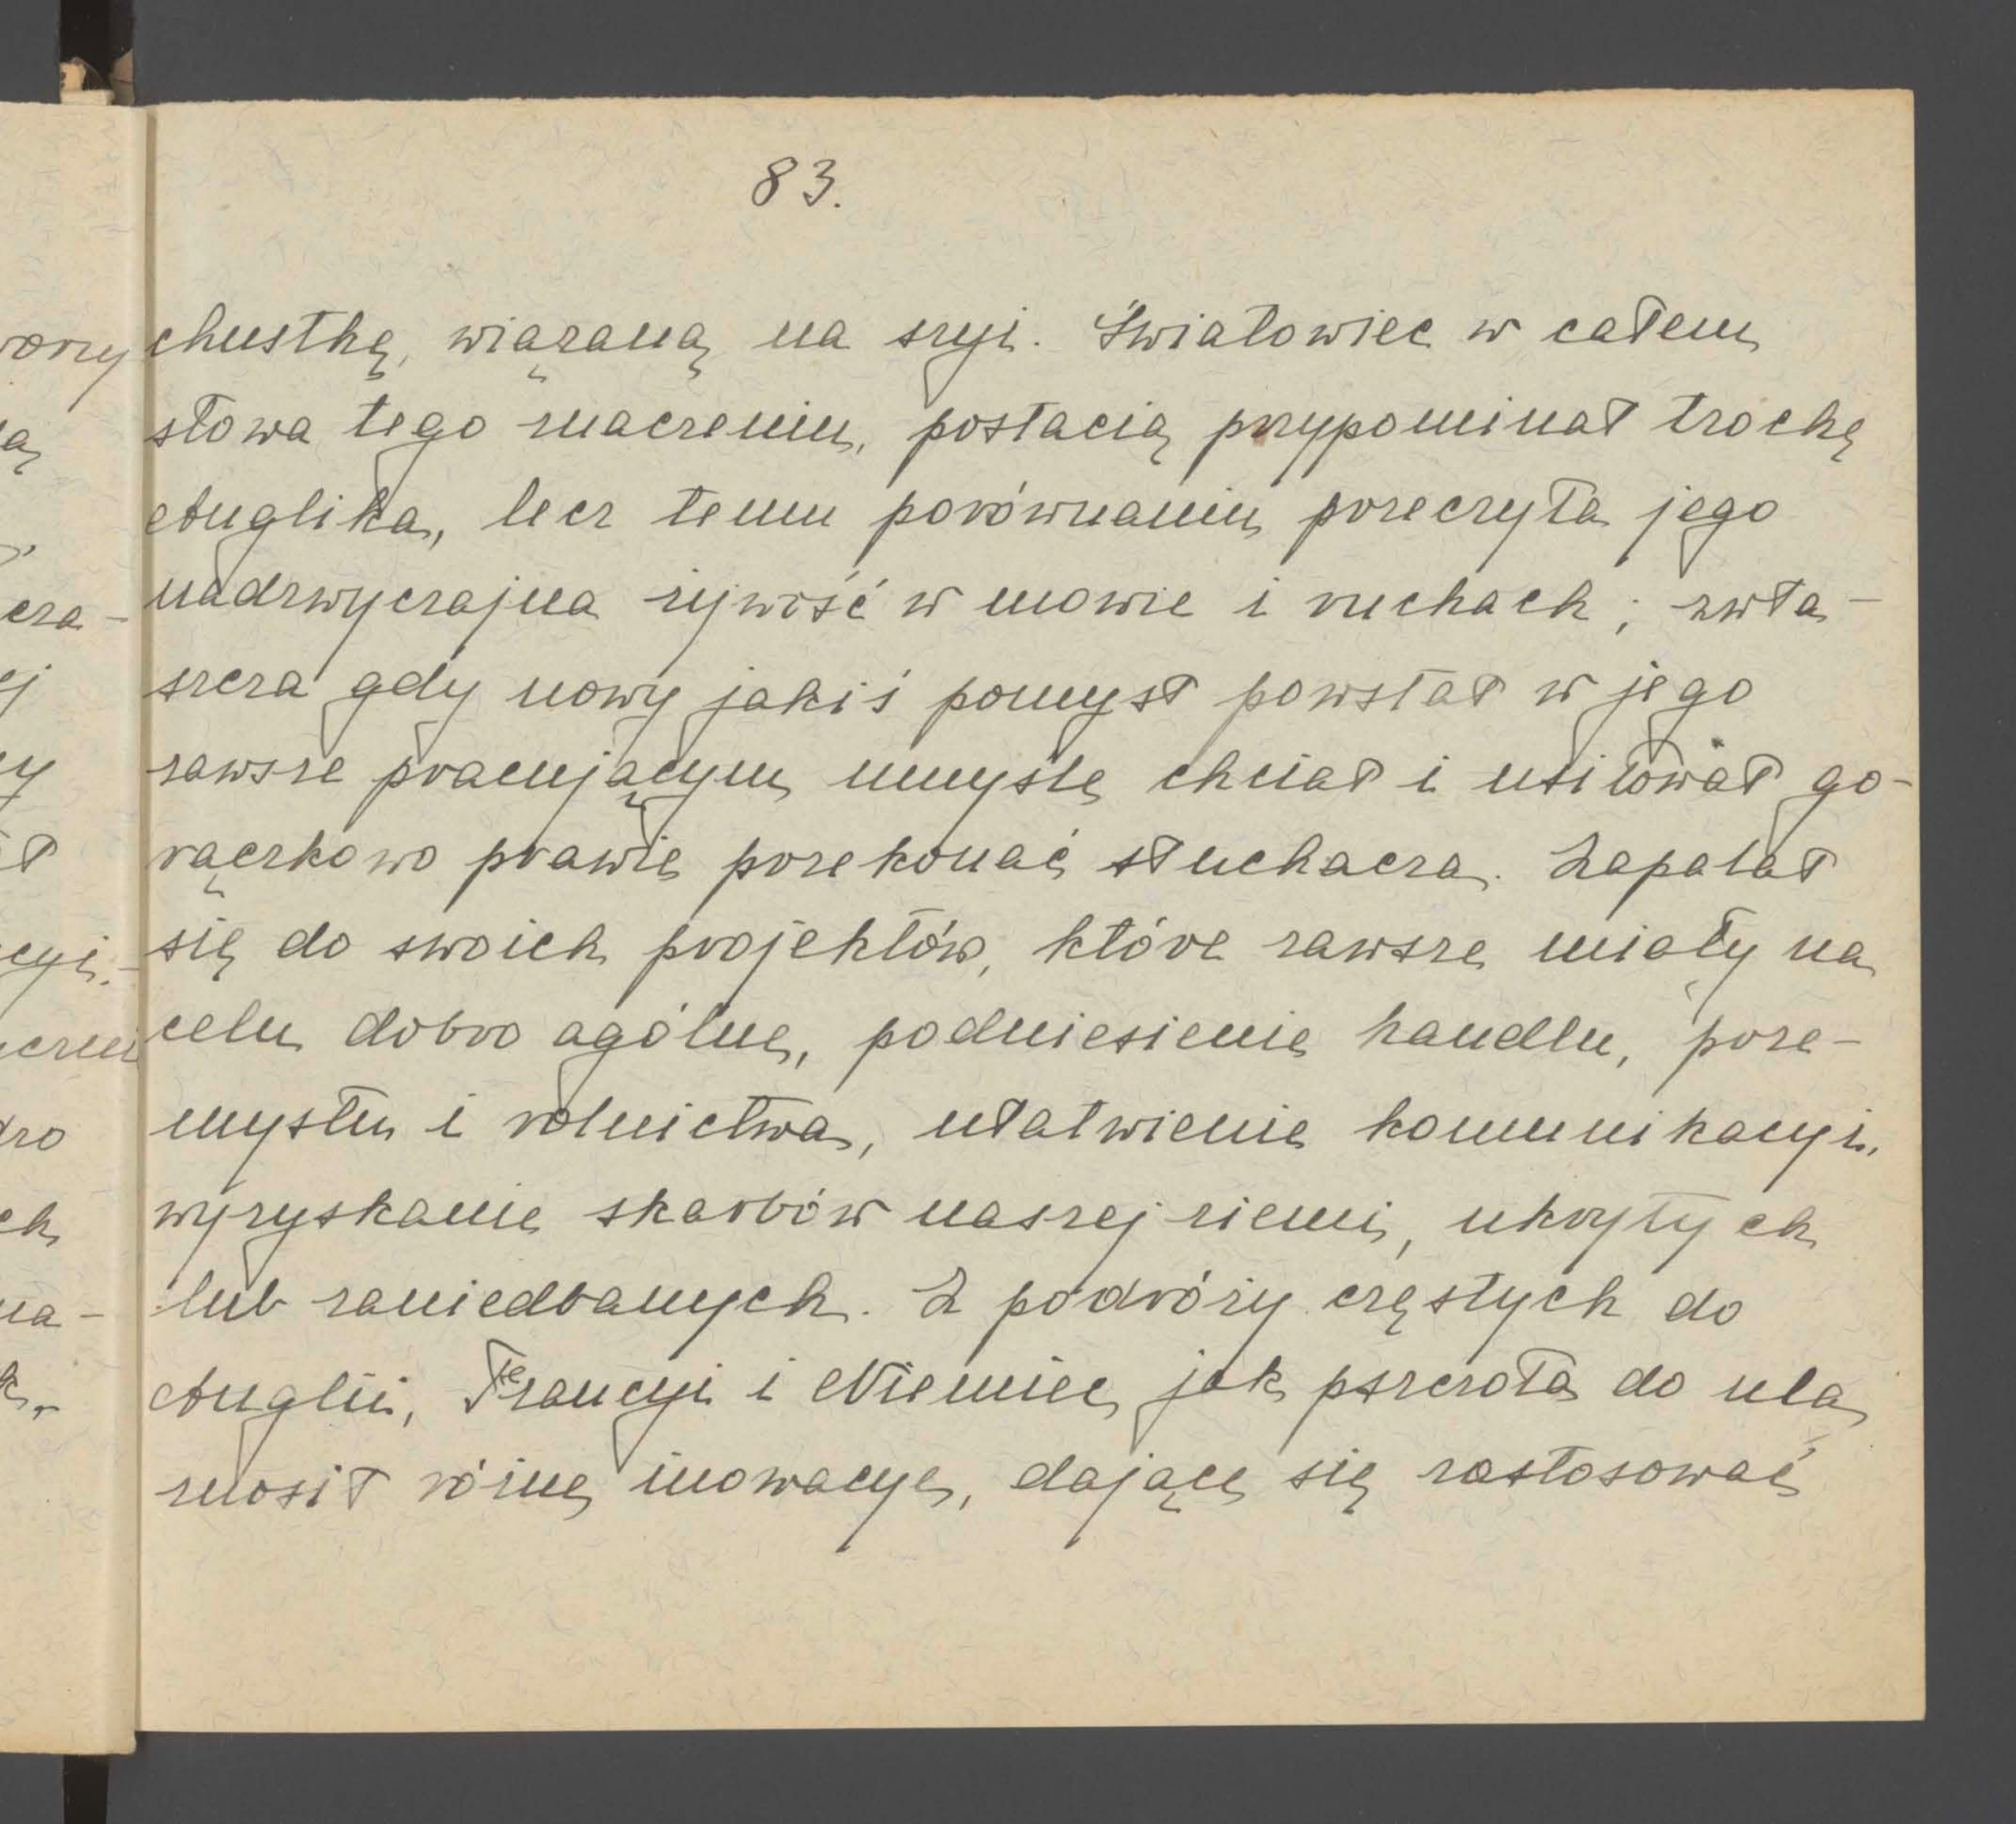 83.
chustkę, wiązaną na szyi. Światowiec w całem
słowa tego znaczeniu, postacią przypominał trochę
Anglika, lecz temu porównaniu przeczyła jego
nadzwyczajna żywość w mowie i ruchach; zwła-
szcza gdy nowy jakiś pomysł powstał w jego
zawsze pracującym umyśle chciał i usiłował go-
rączkowo prawie przekonać słuchacza. Zapalał
się do swoich projektów, które zawsze miały na
celu dobro ogólne, podniesienie handlu, prze-
mysłu i rolnictwa, ułatwienie komunikacyi,
wyzyskanie skarbów naszej ziemi, ukrytych
lub zaniedbanych. Z podróży częstych do
Anglii, Francyi i Niemiec, jak pszczoła do ula
znosił różne inowacye, dające się zastosować